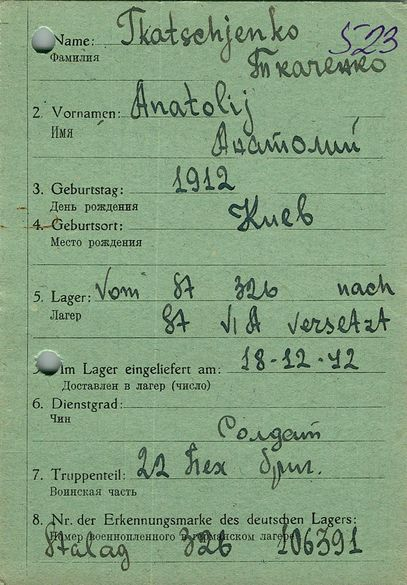 Name: Tkatschjenko 523
Фамилия Ткаченко
2. Vornamen: Anatolij
Имя Анатолий
3. Geburtstag: 1912
День рождения
4. Geburtsort: Киев
Место рождения
5. Lager: Vom St 326 nach
Лагер St VI A versetzt
5. Im Lager eingeliefert am: 18-12-42
Доставлен в лагер (число)
6. Dienstgrad:
Чин Солдат
7. Truppenteil: 22 Пех бриг.
Воинская часть
8. Nr. der Erkennungsmarke des deutschen Lagers:
Номер военнопленного в германском лагере
Stalag 326 106391